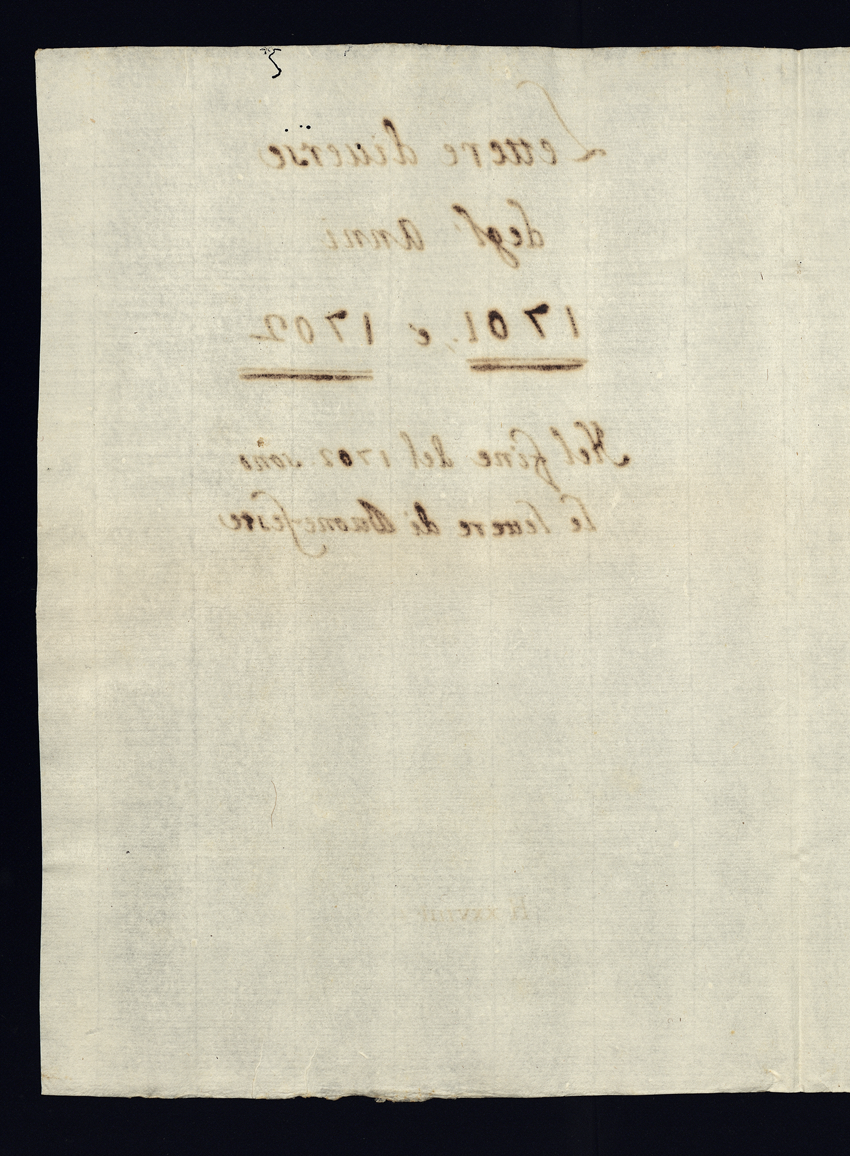 Lettere diuerse
degl' Anni
1701, e 1702
Nel fine del 1702 sono
le lettere di Buone feste